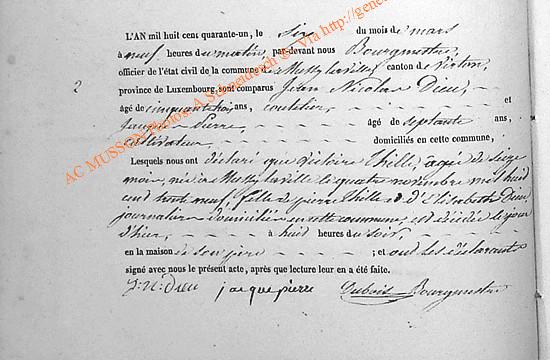 L'AN mil huit cent quarante-un, le six du mois de mars
à neuf heures du matin, par-devant nous Bourgmestre
officier de l'état civil de la commune de Mussy la ville, canton de Virton,
2 province de Luxembourg, sont comparus Jean Nicolas Dieu,
âgé de cinquante trois, ans, coutelier, et
Jacques Pierre, âgé de septante ans,
cultivateur domiciliés en cette commune,
Lesquels nous ont déclaré que Victoire Thille, agée de seize
mois, née à Mussy la ville le quatre novembre mil huit
cent trente neuf, fille de pierre Thille et d'Elisabeth Dieu,
journaliers domiciliés en cette commune, est décédée le jour
d'hier, à huit heures du soir,
en la maison de son père ; et ont les déclarants
signé avec nous le présent acte, après que lecture leur en a été faite.
J: N: Dieu jacque pierre Dubois Bourgmestre
AC MUSSON Photos: A Schneidesch © Via http://gene